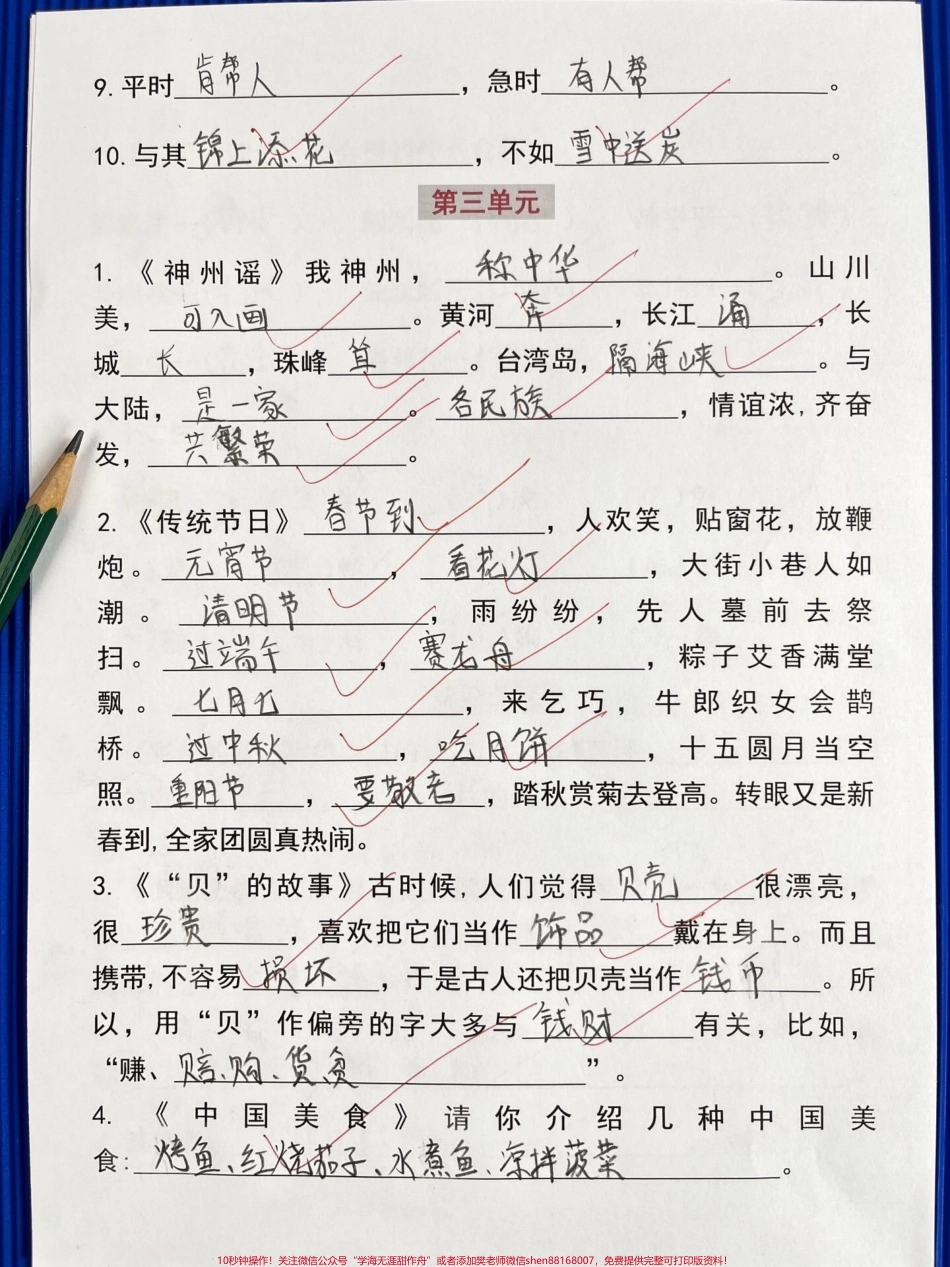 9.平时肯帮人，急时有人帮。
10.与其锦上添花，不如雪中送炭。
第三单元
1.《神州谣》我神州，称中华。山川
美，可入画。黄河奔，长江涌，长
城长，珠峰耸。台湾岛，隔海峡。与
大陆，是一家。各民族，情谊浓,齐奋
发，共繁荣。
2.《传统节日》春节到，人欢笑，贴窗花，放鞭
炮。元宵节，看花灯，大街小巷人如
潮。清明节，雨纷纷，先人墓前去祭
扫。过端午，赛龙舟，粽子艾香满堂
飘。七月七，来乞巧，牛郎织女会鹊
桥。过中秋，吃月饼，十五圆月当空
照。重阳节，要敬老，踏秋赏菊去登高。转眼又是新
春到,全家团圆真热闹。
3.《“贝”的故事》古时候,人们觉得贝壳很漂亮，
很珍贵，喜欢把它们当作饰品戴在身上。而且
携带,不容易损坏，于是古人还把贝壳当作钱币。所
以，用“贝”作偏旁的字大多与钱财有关，比如，
“赚、赔、购、货、贪”。
4.《中国美食》请你介绍几种中国美
食:烤鱼、红烧茄子、水煮鱼、凉拌菠菜。
10秒钟操作！关注微信公众号“学海无涯甜作舟”或者添加樊老师微信shen88168007，免费提供完整可打印版资料！